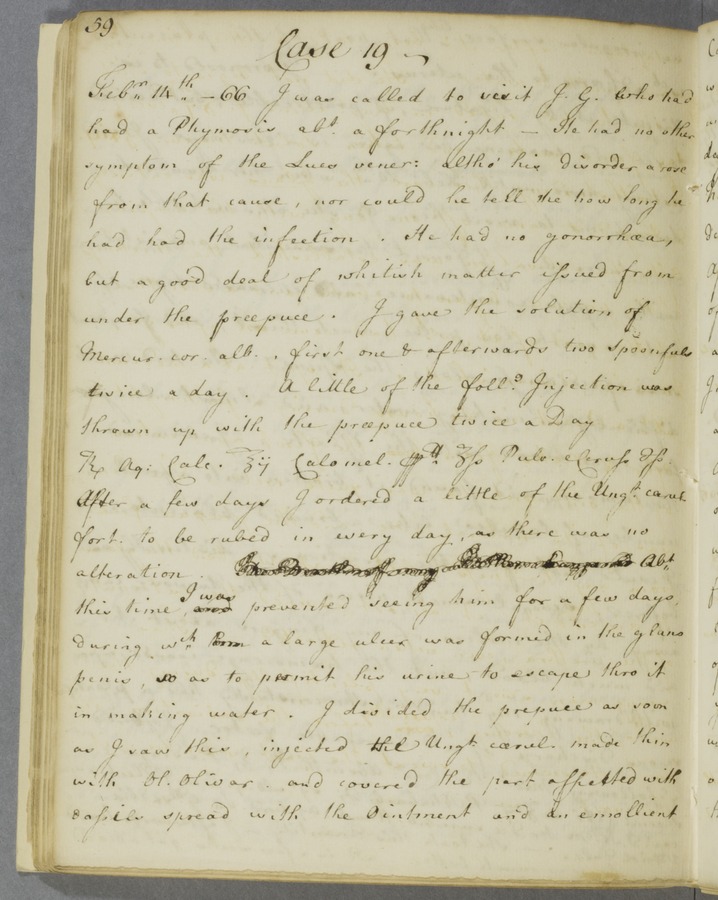 59
Case 19
Febry 14th - 66 I was called to visit J. G. who had
had a Phymosis abt a forthnight — He had no other
symptom of the Lues vener: altho' his disorder arose
from that cause, nor could he tell me how long he
had had the infection. He had no gonorrhæa,
but a good deal of whitish matter issued from
under the præpuce. I gave the solution of
Mercur. cor. alb., first one & afterwards two spoonfuls
twice a day. A little of the follg Injection was
thrown up with the præpuce twice a Day
℞ Aq: Calc. ℥ij Calomel. ppt ʒss Pulv. e Ceruss ʒss.
After a few days I ordered a little of the Ungt cærul
fort. to be rubed in every day, as there was no
alteration. Abt
this time I was prevented seeing him for a few days,
during wch a large ulcer was formed in the glans
penis, so as to permit his urine to escape thro it
in making water. I divided the prepuce as soon
as I saw this, injected the Ungt cærul. made thin
with Ol. Olivar. and covered the part affected with
dossils spread with the Ointment and an emollient